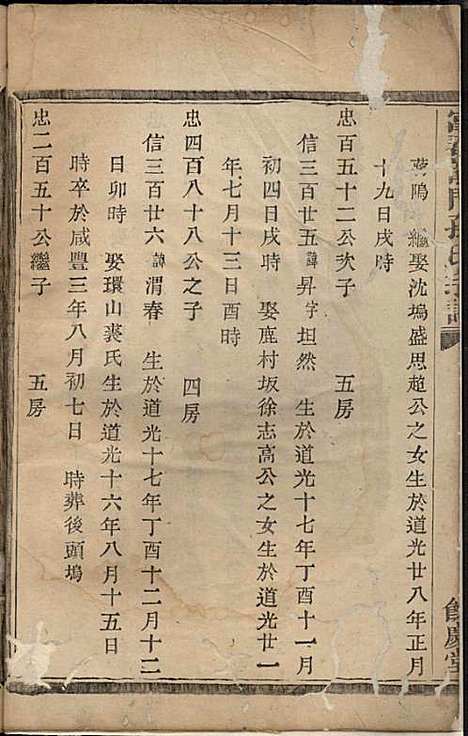 葬隝 繼娶沈塢盛思趙公之女生於道光廿八年正月
十九日戌時
忠百五十二公次子 五房
信三百廿五諱昇字坦然 生於道光十七年丁酉十一月
初四日戌時 娶鹿村坂徐志高公之女生於道光廿一
年七月十三日酉時
忠四百八十八公之子 四房
信三百廿六諱渭春 生於道光十七年丁酉十二月十二
日卯時 娶環山裘氏生於道光十六年八月十五日
時卒於咸豐三年八月初七日 時葬後頭塢
忠二百五十公繼子 五房
孫氏宗譜
餘慶堂